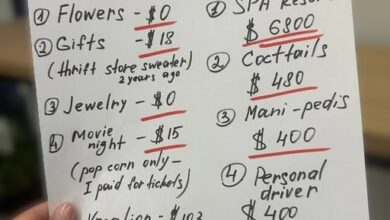 ① Flowers - $0
② Gifts - $18
(thrift store sweater)
2 years ago
③ Jewelry - $0
④ Movie
night - $15
(pop corn only -
I paid for tickets)
① SPA
$ 6800
② Cocttails
$ 480
③ Mani-pedis
$ 400
④ Personal
driver
$400